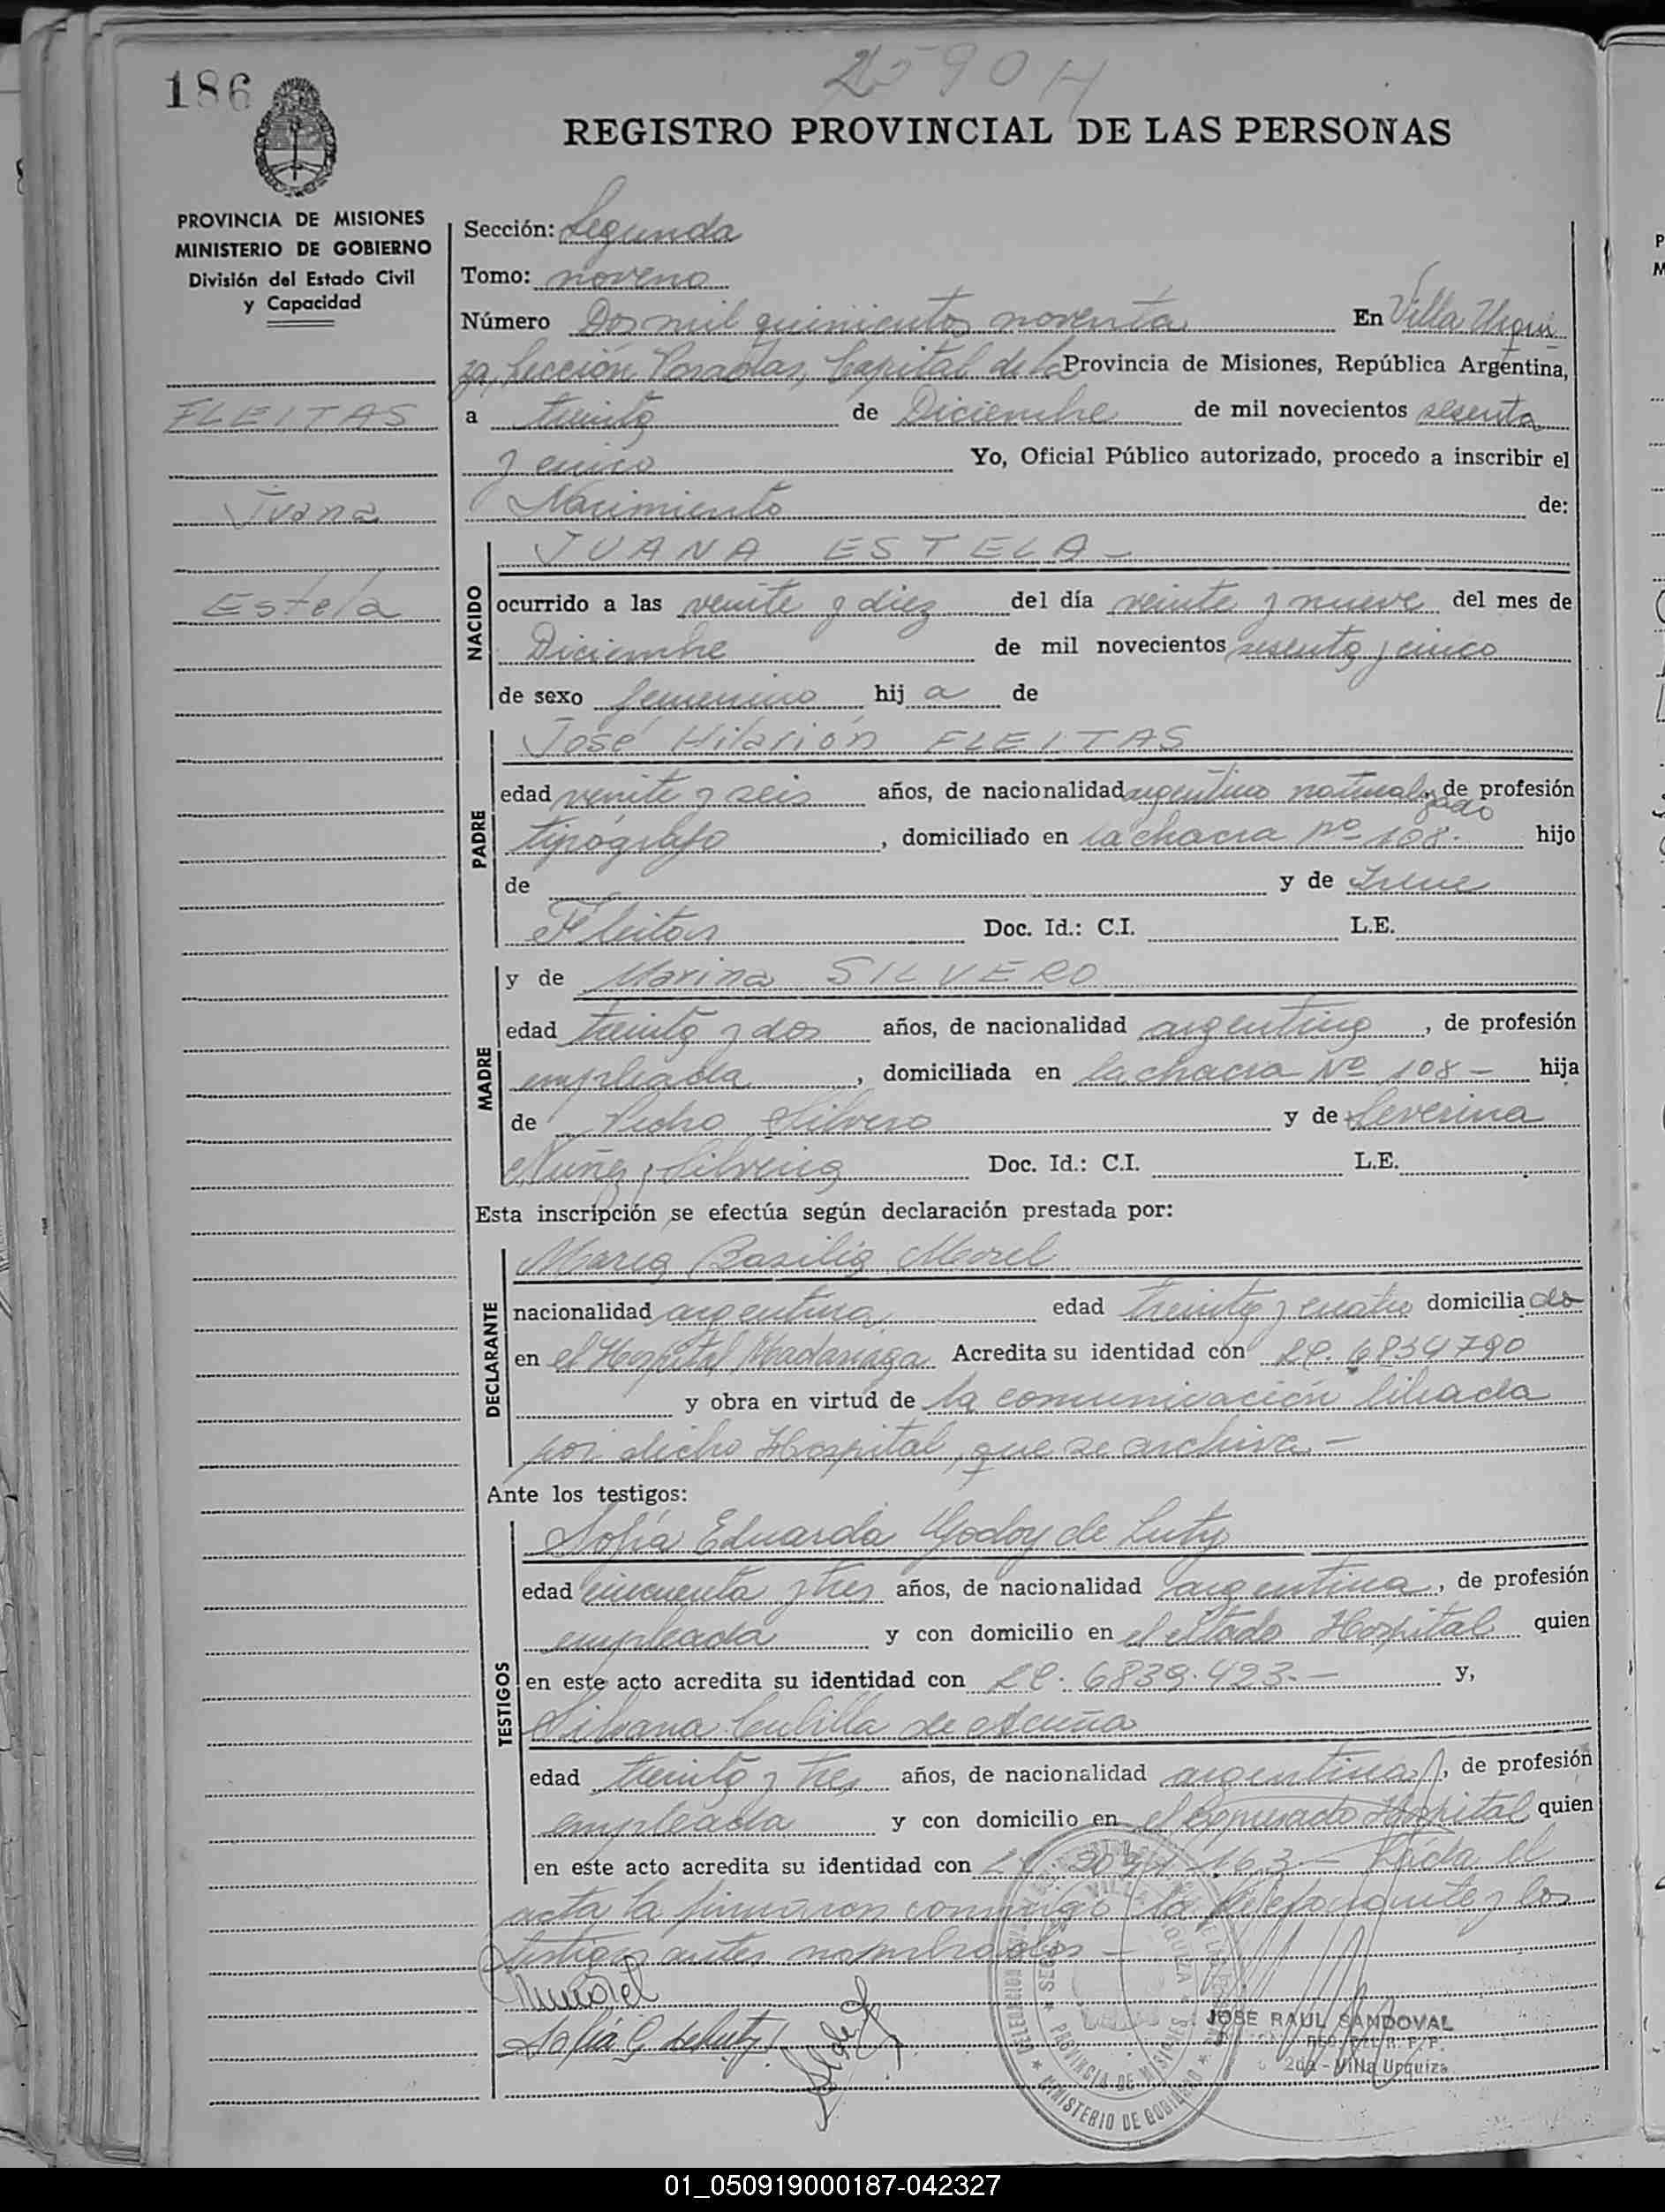 2590 H
186
REGISTRO PROVINCIAL DE LAS PERSONAS
PROVINCIA DE MISIONES
MINISTERIO DE GOBIERNO
División del Estado Civil
y Capacidad
FLEITAS
Juana
Estela
Sección: Segunda
Tomo: noveno
Número Dos mil quinientos noventa En Villa Urqui
za, Sección Posadas, Capital de la Provincia de Misiones, República Argentina,
a treinta de Diciembre de mil novecientos sesenta
y cinco Yo, Oficial Público autorizado, procedo a inscribir el
Nacimiento de:
NACIDO
JUANA ESTELA -
ocurrido a las veinte y diez del día veinte y nueve del mes de
Diciembre de mil novecientos sesenta y cinco
de sexo femenino hij a de
PADRE
José Hilarión FLEITAS
edad veinte y seis años, de nacionalidad argentino naturalizado, de profesión
tipógrafo, domiciliado en la chacra nº 108.- hijo
de y de Irene
Fleitas Doc. Id.: C.I. L.E.
MADRE
y de Marina SILVERO
edad treinta y dos años, de nacionalidad argentina, de profesión
empleada, domiciliada en la chacra Nº 108 - hija
de Pedro Silvero y de Severina
Núñez Doc. Id.: C.I. L.E.
Esta inscripción se efectúa según declaración prestada por:
DECLARANTE
María Basilia Morel
nacionalidad argentina edad treinta y cuatro domicilia da
en el Hospital Madariaga Acredita su identidad con LC. 6834790
y obra en virtud de la comunicación librada
por dicho Hospital, que se archiva.-
Ante los testigos:
TESTIGOS
Sofía Eduarda Godoy de Luty
edad cincuenta y tres años, de nacionalidad argentina, de profesión
empleada y con domicilio en el citado Hospital quien
en este acto acredita su identidad con LC. 6839.423.- y,
Silvana Cubilla de Acuña
edad treinta y tres años, de nacionalidad argentina, de profesión
empleada y con domicilio en el expresado Hospital quien
en este acto acredita su identidad con LC 163.- Leída el
acta, la firmaron conmigo la y los
testigos antes nombrados -
MBMorel
Sofía G de Luty
MINISTERIO DE GOBIERNO
PROVINCIA DE MISIONES
JOSE RAUL SANDOVAL
2da - Villa Urquiza
01_050919000187-042327